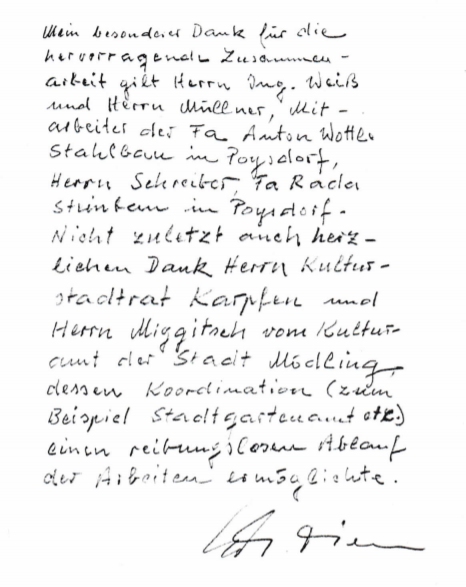 Mein besonderer Dank für die
hervorragende Zusammen-
arbeit gilt Herrn Ing. Weiß
und Herrn Müllner, Mit-
arbeiter der Fa Anton
Stahlbau in Poysdorf,
Herrn Schreiber, Fa Rada
Steinbau in Poysdorf.
Nicht zuletzt auch herz-
lichen Dank Herrn Kultur-
stadtrat Karpfen und
Herrn Miggitsch vom Kultur-
amt der Stadt Mödling,
dessen Koordination (zum
Beispiel Stadtgartenamt etc.)
einen reibungslosen Ablauf
der Arbeiten ermöglichte.